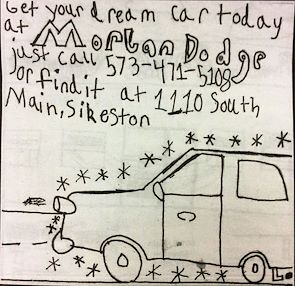 Get your dream car today
at Morlan Dodge
just call 573-471-5108
or find it at 1110 South
Main, Sikeston